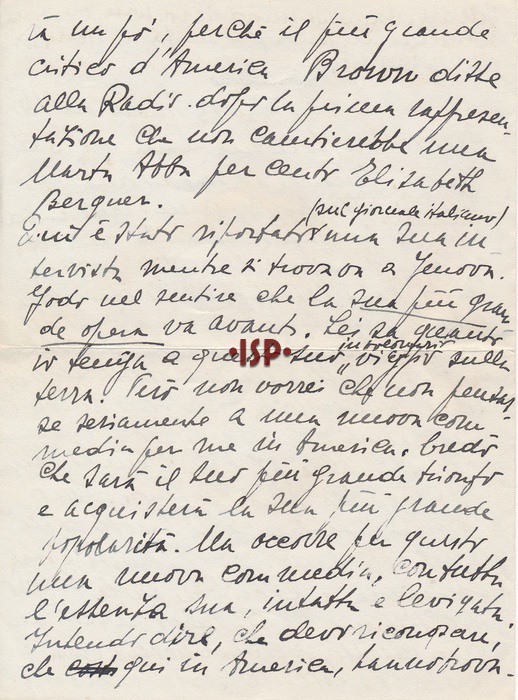 tà un po', perché il più grande
critico d'America Brown disse
alla Radio dopo la prima rappresen-
tazione che non cambierebbe una
Marta Abba per cento Elizabeth
Bergner.
(sul giornale italiano)
Qui è stato riportato una sua in
tervista mentre si trovava a Genova.
Godo nel sentire che la sua più gran
de opera va avanti. Lei sa quanto
io tenga a questo suo "viaggio sulla
terra. Però non vorrei che non pensas-
se seriamente a una nuova com
media per me in America. Credo
che sarà il suo più grande trionfo
e acquisterà la sua più grande
popolarità. Ma occorre per questo
una nuova commedia, con tutta
l'essenza sua, intatta e levigata.
Intendo dire, che devo riconoscere,
che qui in America, hanno trova-
·ISP·